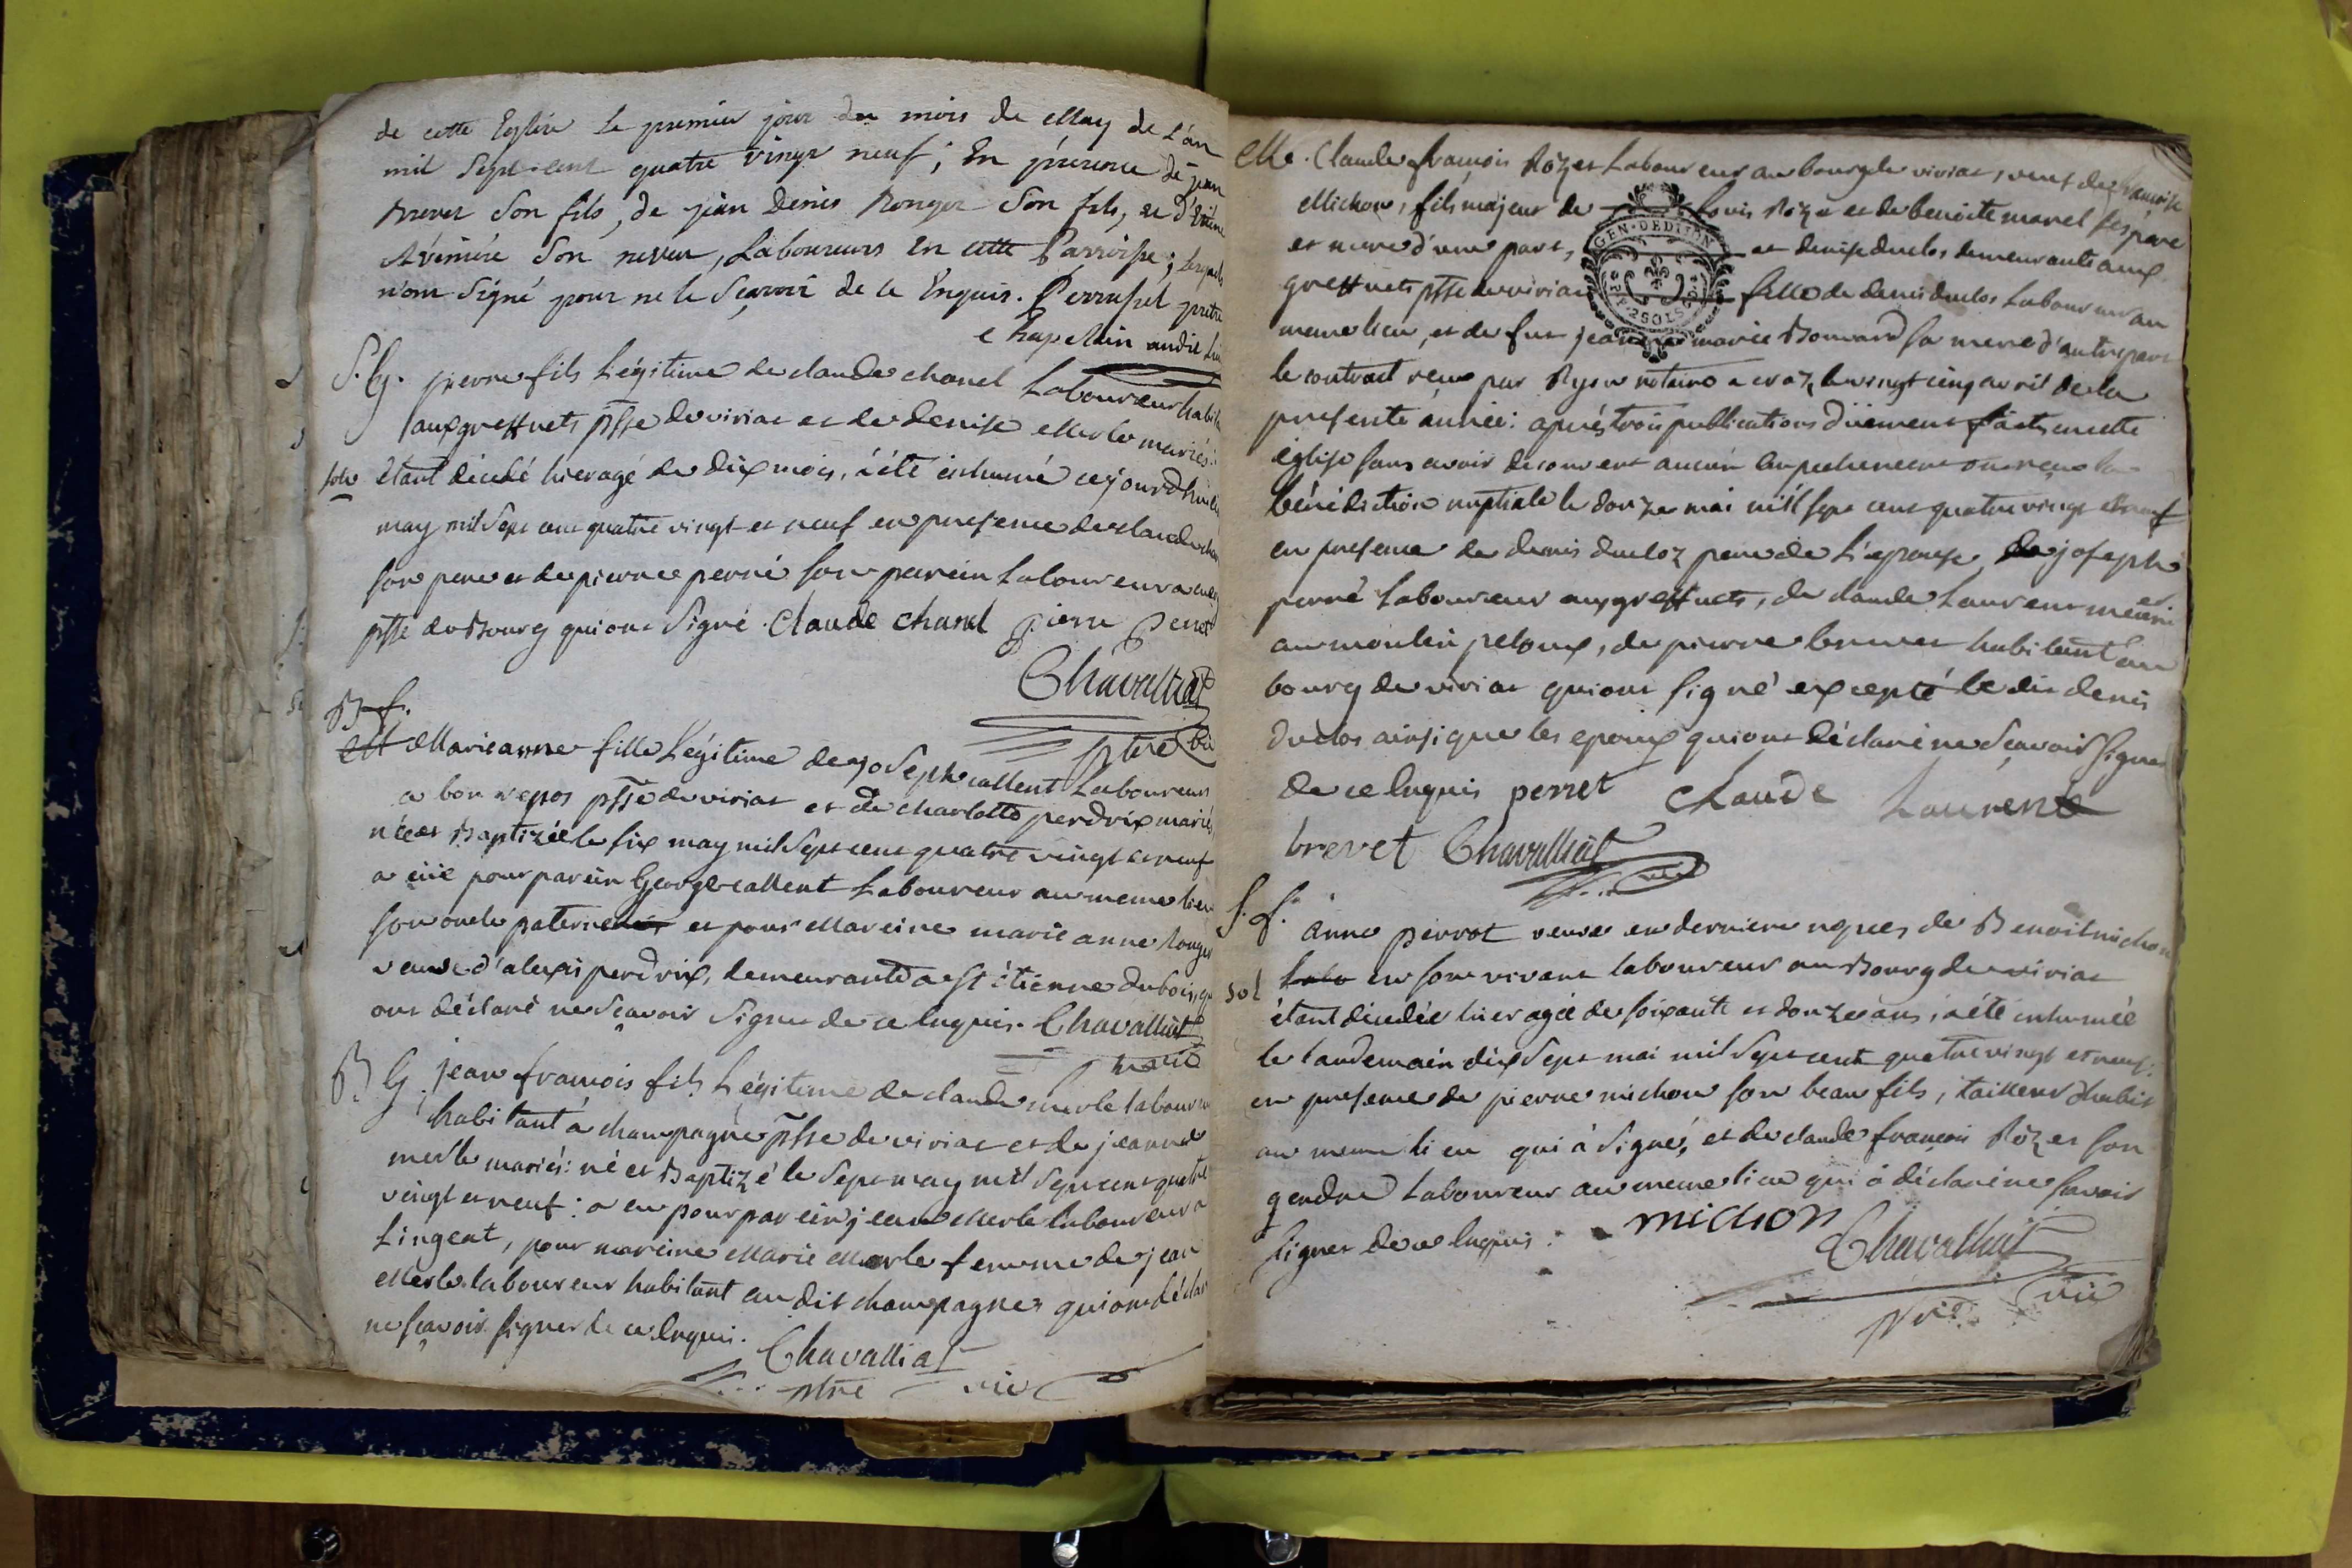 de cette Eglise le premier jour du mois de May de L'an
mil sept cent quatre vingt neuf; En présence de jean
Brevet Son fils, de jean Denis Ronger Son fils, et d'Etiene
Son neveu, Laboureurs En cette Parroisse; lesquels
n'ont Signé pour ne le Sçavoir de ce Enquis. Perruquet pretre
Chapellain audit lieu
S. G. pierre fils Légitime de claude chanel Laboureur habit
aux greffets psse de viriat et de denise Merle mariés:
solv étant décédé hier agé de dix mois, à été inhumé ce jourdhui
may mil Sept cent quatre vingt et neuf en presence de claude chan
son pere et de pierre perré son parein Laboureur a
psse du Bourg qui ont Signé. Claude chanel pierre Perret
Chavalliat
ptre vic
B f.
M Marie anne fille Légitime de joseph callent Laboureur
a bon repos psse de viriat et de charlotte perdrix mariés
née et Baptizée le six may mil Sept cent quatre vingt et neuf
a eüe pour parein George callent Laboureur au meme lieu
son oncle paternel et pour Mareine marie anne Ronger
veuve d'alexis perdrix, demeurante a St étienne dubois, qu
ont déclaré ne Sçavoir Signer de ce Enquis. Chavalliat
vic
B G. jean françois fils Légitime de claude merle laboureur
habitant à champagne psse de viriat et de jeanne
merle mariés: né et Baptizé le Sept may mil Sept cent quatre
vingt et neuf: a eu pour parein jean Merle laboureur a
Lingeat, pour mareine Marie Merle femme de jean
Merle laboureur habitant au dit champagne; qui ont déclar
ne sçavoir signer de ce Enquis.
Chavalliat
ptre vic
M. Claude françois Rozet Laboureur au bourg de viriat, veuf de françoise
Michon, fils majeur de Louis Rozet et de benoite marel ses pere
et mere d'une part, et denise duclos demeurante aux
greffets psse de viriat fille de denis duclos Laboureur au
meme lieu, et de fue jeanne marie Bouvard sa mere d'autre part
le contract reçu par Ryon notaire a croz, le vingt cinq avril de la
presente année: aprés trois publications düement faites en cette
église sans avoir decouvert aucun Empechement ont reçu la
bénédiction nuptiale le douze mai mil sept cent quatre vingt et neuf
en presence de denis ducloz pere de L'epouse, de joseph
perré Laboureur aux greffets, de claude Laurent meunier
au moulin peloux, de pierre brevet habitant au
bourg de viriat qui ont signé excepté le dit denis
duclos ainsi que les epoux qui ont déclaré ne Sçavoir signer
de ce Enquis perret Claude Laurent
brevet Chavalliat
vic
S. f. anne perrot veuve en derniere nopces de Benoit michon
sol Labo en son vivant laboureur au Bourg de viriat
étant décedée hier agée de soixante et douze ans, à été inhumée
le landemain dix Sept mai mil Sept cent quatre vingt et neuf:
en presence de pierre michon son beau fils, tailleur d'habit
au meme lieu qui à signé, et de claude françois Rozet son
gendre Laboureur au meme lieu qui à déclaré ne sçavoir
signer de ce Enquis. michon
Chavalliat
ptre vic
GEN · DEDIJON
2 SOLS